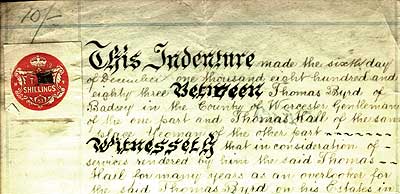 10/-
SHILLINGS
This Indenture made the sixth day
of December one thousand eight hundred and
eighty three Between Thomas Byrd of
Badsey in the County of Worcester Gentleman
of the one part and Thomas Hall of the same
place Yeoman of the other part
Witnesseth that in consideration of
services rendered by him the said Thomas
Hall for many years as an overlooker for
the said Thomas Byrd on his Estates in